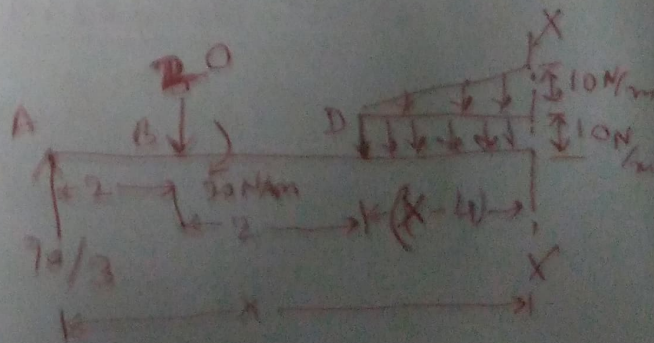 X
20
10 N/m
A
B
D
10 N/m
2
2
(X-4)
70/3
X
x